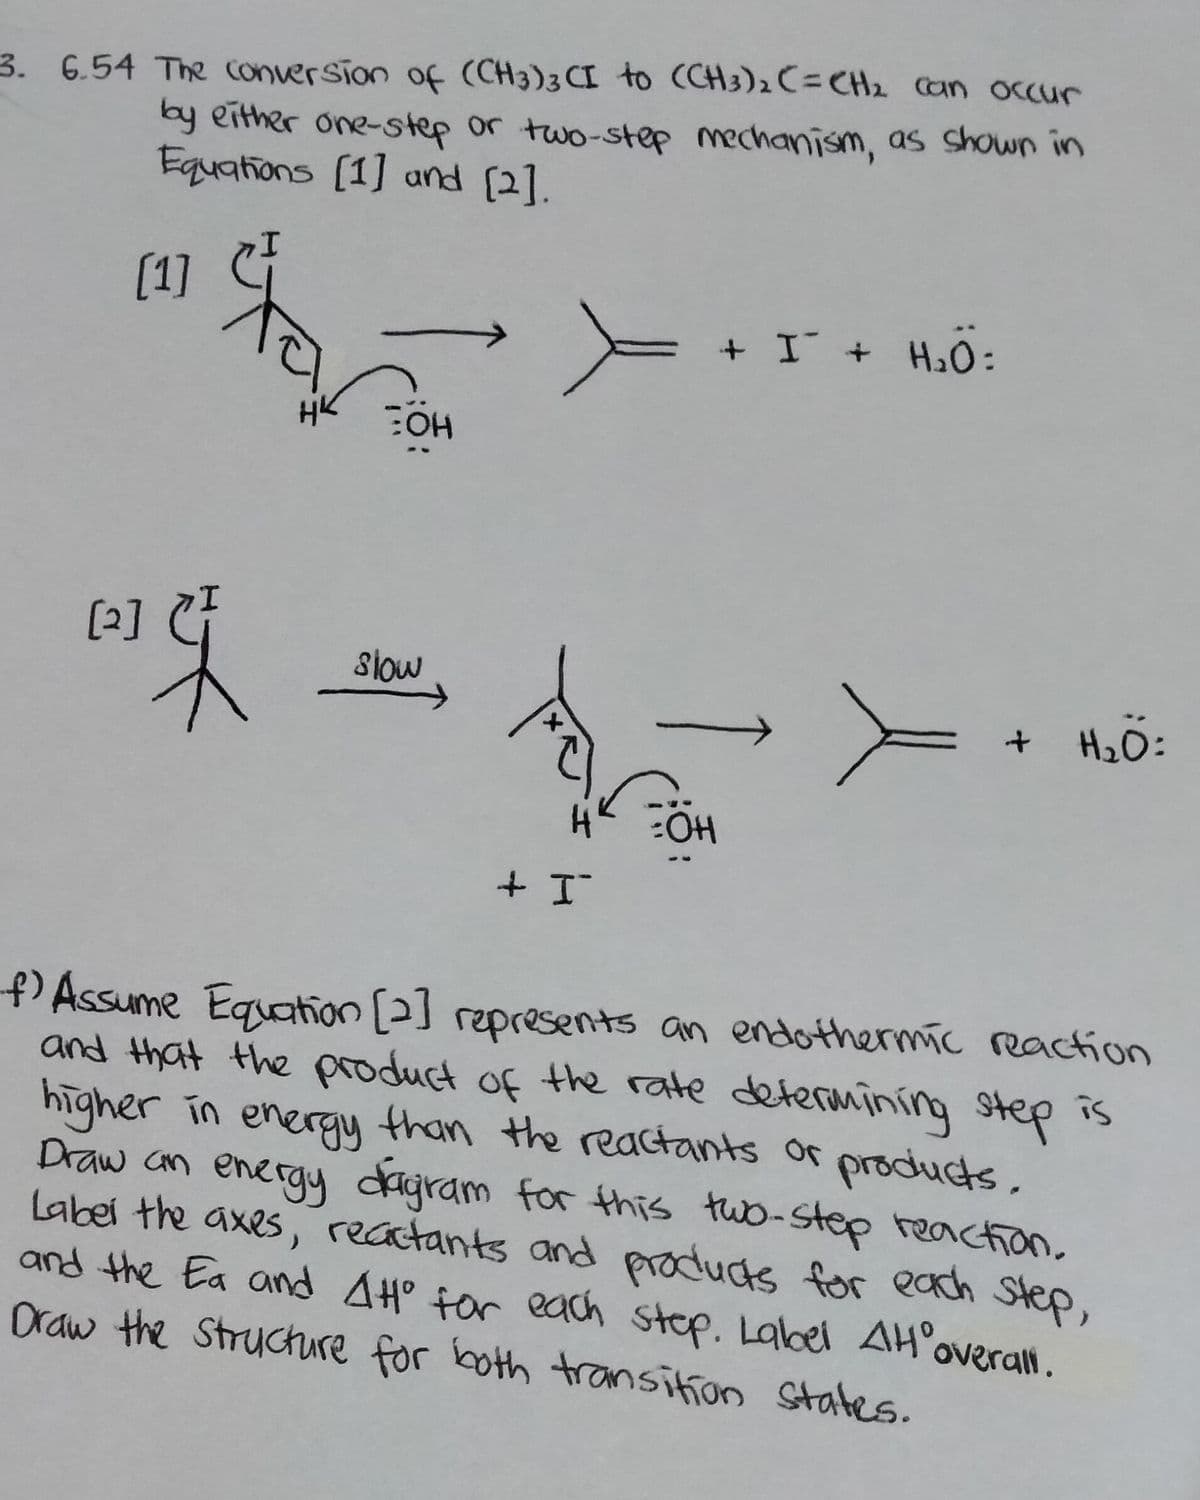 3. 6.54 The conversion of (CH3)3CI to (CH3)2C=CH2 can occur
by either one-step or two-step mechanism, as shown in
Equations [1] and [2].
[1] I
+ I⁻ + H₂Ö:
H ⁻:ÖH
[2] I
slow
+
+ H₂Ö:
H ⁻:ÖH
+ I⁻
f) Assume Equation [2] represents an endothermic reaction
and that the product of the rate determining step is
higher in energy than the reactants or products.
Draw an energy diagram for this two-step reaction.
Label the axes, reactants and products for each step,
and the Ea and ΔH° for each step. Label ΔH°overall.
Draw the structure for both transition states.